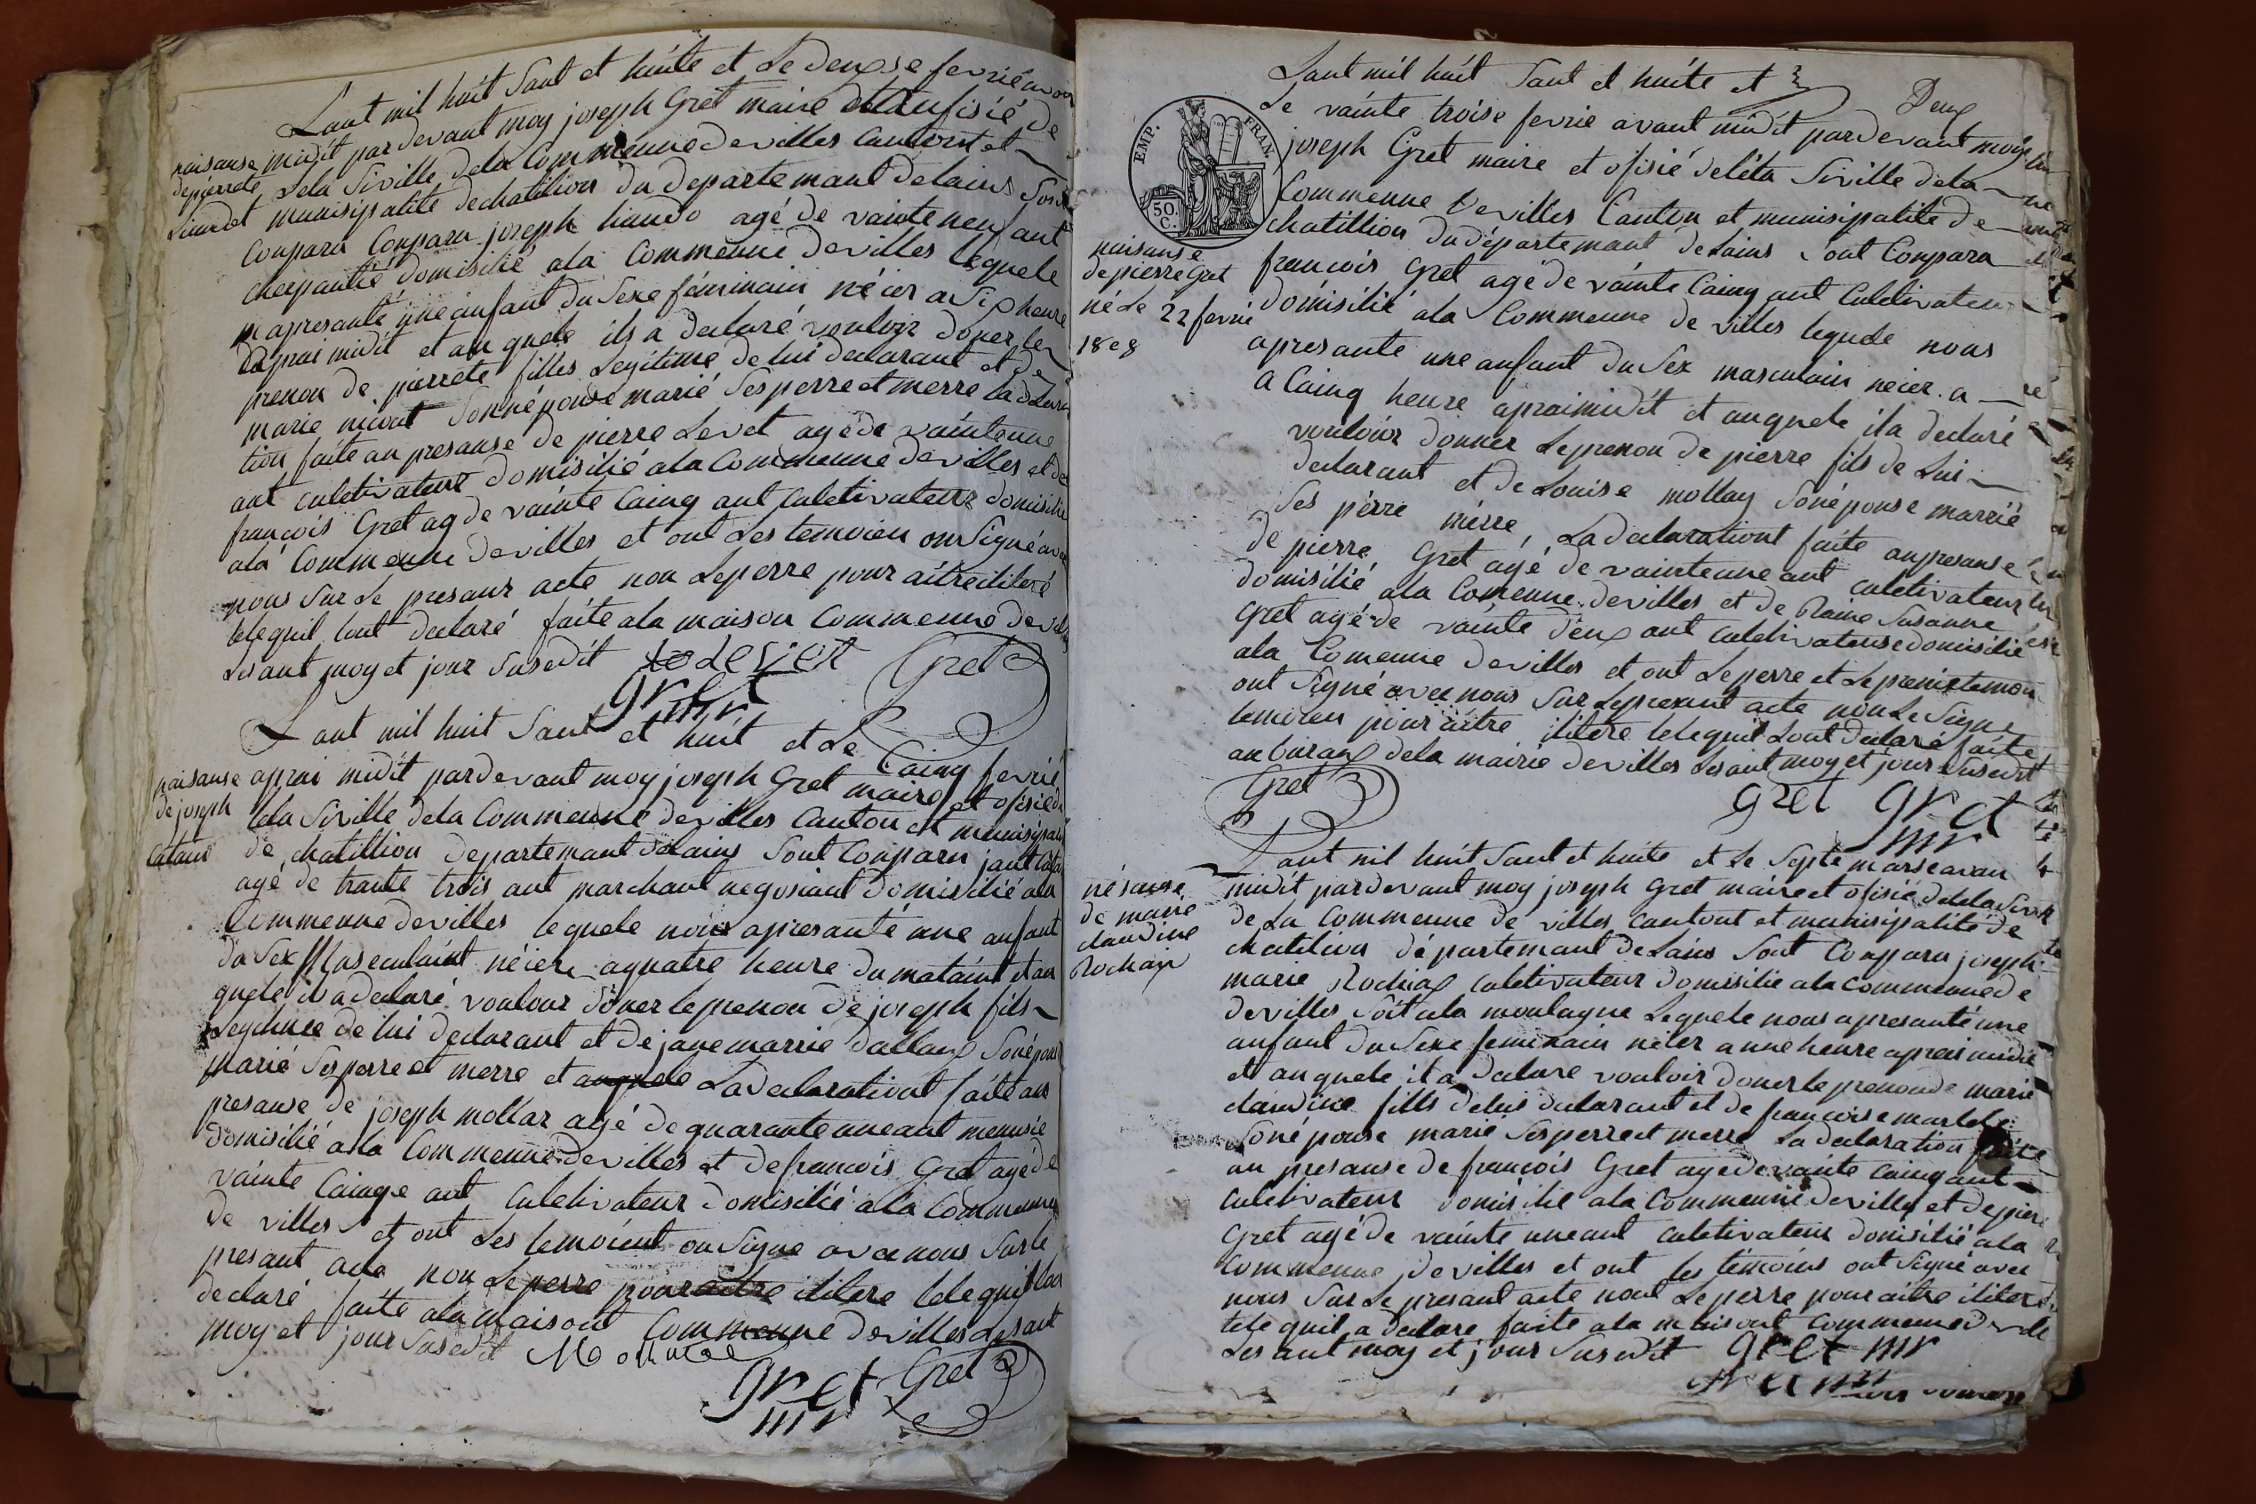 Lant mil huit Sant et huite et Le deuxse fevrié avan
midit par devant moy joseph Gret maire et aufisié de
Lela Siville dela Commeune devilles Cantont et
munisipalité dechatilion du departemant delains Sont
Conparu Conparu joseph agé de vainteneuf ant
cherpantié domisilié ala Commeune devilles lequele
mapresanté une anfant du Sexe féminain né ier a Six heure
daprai midit et au quele ils a declaré vouloir doner le
prenon de pierrete filles Legitime de lui declarant et de
marie nicout Sonnépouse marié Sesperre et merre La declara
tion faite an presanse de pierre Levet agé de vainteune
ant culetivateur domisilié ala Commeune devilles et de
francois Gret ag de vainte Cainq ant Culetivateur domisilié
ala Commeune devilles et ont Les temoien on Signé avec
nous Sur Le presant acte non Leperre pour aitre iliteré
telequil lont declaré faite ala maison Commeune devilles
Lesant moy et jour Susedit levet Gret
gret
mr
naisanse
depierrete
Lant mil huit Sant et huit et Le Cainq fevrié
aprai midit pardevant moy joseph Gret maire et ofisié de
lela Siville dela Commeune devilles Canton et munisipalité
de chatillion departemant delains Sont Conparu
agé de trante trois ant marchant negosiant domisilié ala
Commeune devilles lequele nous apresanté une anfant
du Sex Masculaint né ier aquatre heure du mataint et au
quele il a declaré vouloir doner le prenon de joseph fils
Legitime de lui declarant et de janemarrie dallau Sonépouse
marié Sesperre et merre et auquele La declarationt faite an
presanse de joseph mollar agé de quarante uneant menusié
domisilié ala Commeune devilles et defrancois Gret agé de
vainte Cainqe ant Culetivateur domisilié ala Commeune
de villes et ont Les temoient on Signe avec nous Sur le
presant acte non Leperre pouraitre ilitere telequil lon
declaré faite ala maisont Commeune devilles Lesant
moy et jour Susedit
gret Gret
mr
naisanse
de joseph
Lant mil huit Sant et huite et
Deux
Le vainte troise fevrie avant midit pardevant moy
joseph Gret maire et ofisié deléta Siville dela
Commeune devilles Canton et munisipalite de
chatillion du département delains Sont Conparu
francois Gret agé de vainte Cainq ant Culetivateur
domisilié ala Commeune de villes lequele nous
apresanté une anfant du Sex masculain né ier a
a Cainq heure apraimidit et auquele ila declaré
vouloir donner Leprenon de pierre fils de Lui
declarant et de Louise mollay Sonépouse marrié
Ses pèrre mèrre, La declarationt faite anpresanse
de pierre Gret agé de vainteune ant culetivateur
domisilié ala Comeune devilles et de Raine Susanne
Gret agé de vainte deux ant culetivateuse domisilié
ala Comeune devilles et ont Leperre et Lepremié temoin
ont Signé avec nous Sur Lepresant acte non Le Signe
temoien pour aitre ilitere telequil Lont declaré faite
au buraux dela mairie devilles Lesant moy et jour Susedit
Gret Gret gret
mr
EMP. FRAN.
50.
C.
naisanse
depierre Gret
né Le 22 fevrie
1808
Lant mil huit Sant et huite et Le Septe marse avan
midit pardevant moy joseph Gret maire et ofisié delela Siville
de La Commeune de villes cantont et munisipalité de
chatilion département deLains Sont Conparu joseph
marie Rochax Culetivateur domisilie ala Commeune de
devilles Soit ala montagne Lequele nous apresanté une
anfant du Sexe feminain né ier a une heure aprai midit
et auquele ila declaré vouloir doner le prenon de marie
claudine fills delui declarant et de francoise martel
Sonépouse marié Sesperre et merre La declaration faite
an presanse de francois Gret agé de vainte cainq ant
Culetivateur domisilié ala Commeune de villes et de pierre
Gret agé de vainte uneant culetivateur domisilié ala
Commeune devilles et ont les témoins ont Signé avec
nous Sur Le presant acte nont Le perre pour aitre ilitere
tele quil a declaré faite ala maisont Commeune de ville
Les ant moy et jour Susedit gret mr
nésanse
de marie
claudine
Rochax